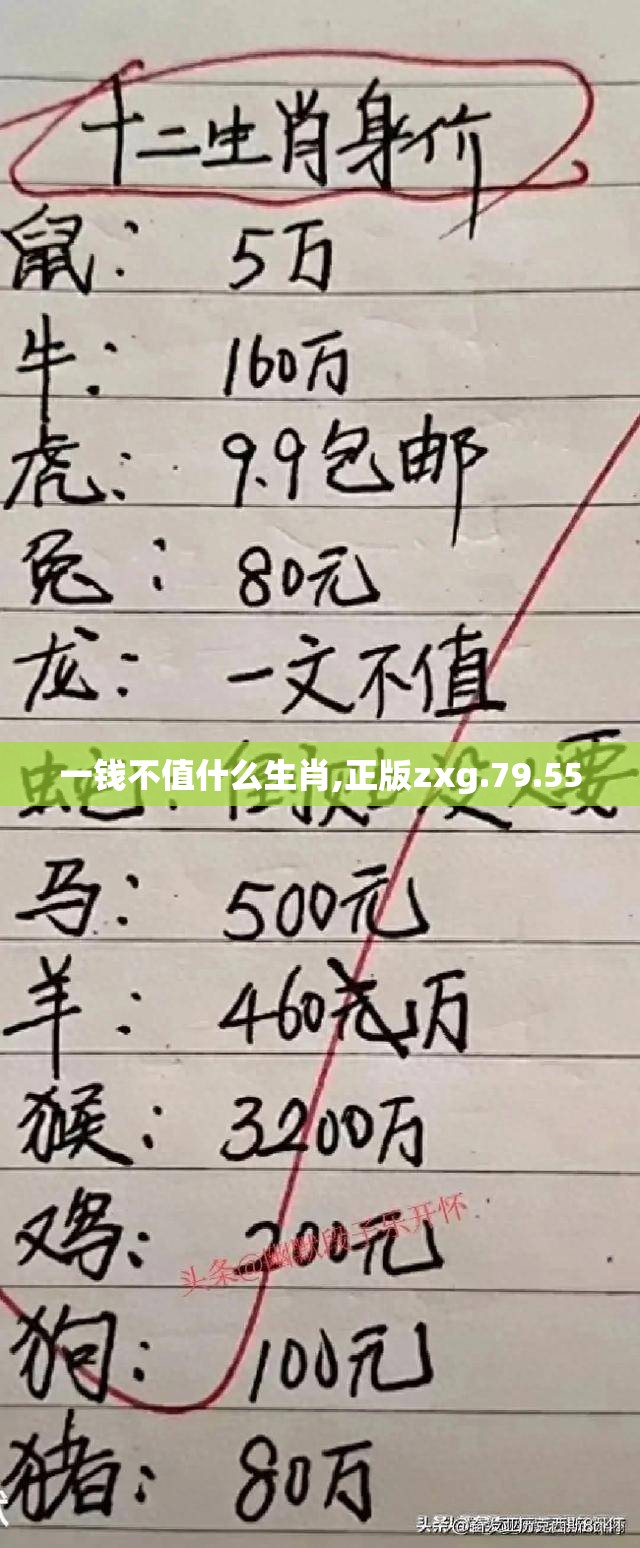 十二生肖身价
鼠: 5万
牛: 160万
虎: 9.9包邮
兔: 80元
龙: 一文不值
一钱不值什么生肖,正版zxg.79.55
马: 500元
羊: 460元万
猴: 3200万
鸡: 200元
头条@幽默段子乐开怀
狗: 100元
猪: 80万